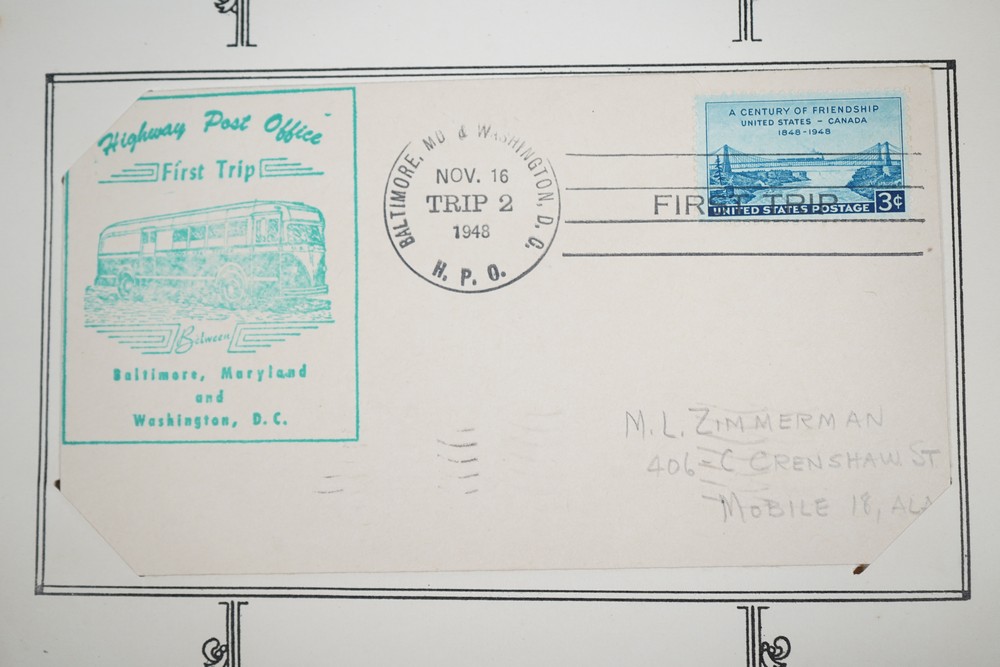 Highway Post Office
First Trip
Between
Baltimore, Maryland
and
Washington, D. C.
BALTIMORE, MD & WASHINGTON, D. C.
NOV. 16
TRIP 2
1948
H. P. O.
FIRST TRIP
A CENTURY OF FRIENDSHIP
UNITED STATES - CANADA
1848-1948
UNITED STATES POSTAGE 3¢
M. L. ZIMMERMAN
406-C CRENSHAW ST
MOBILE 18, ALA